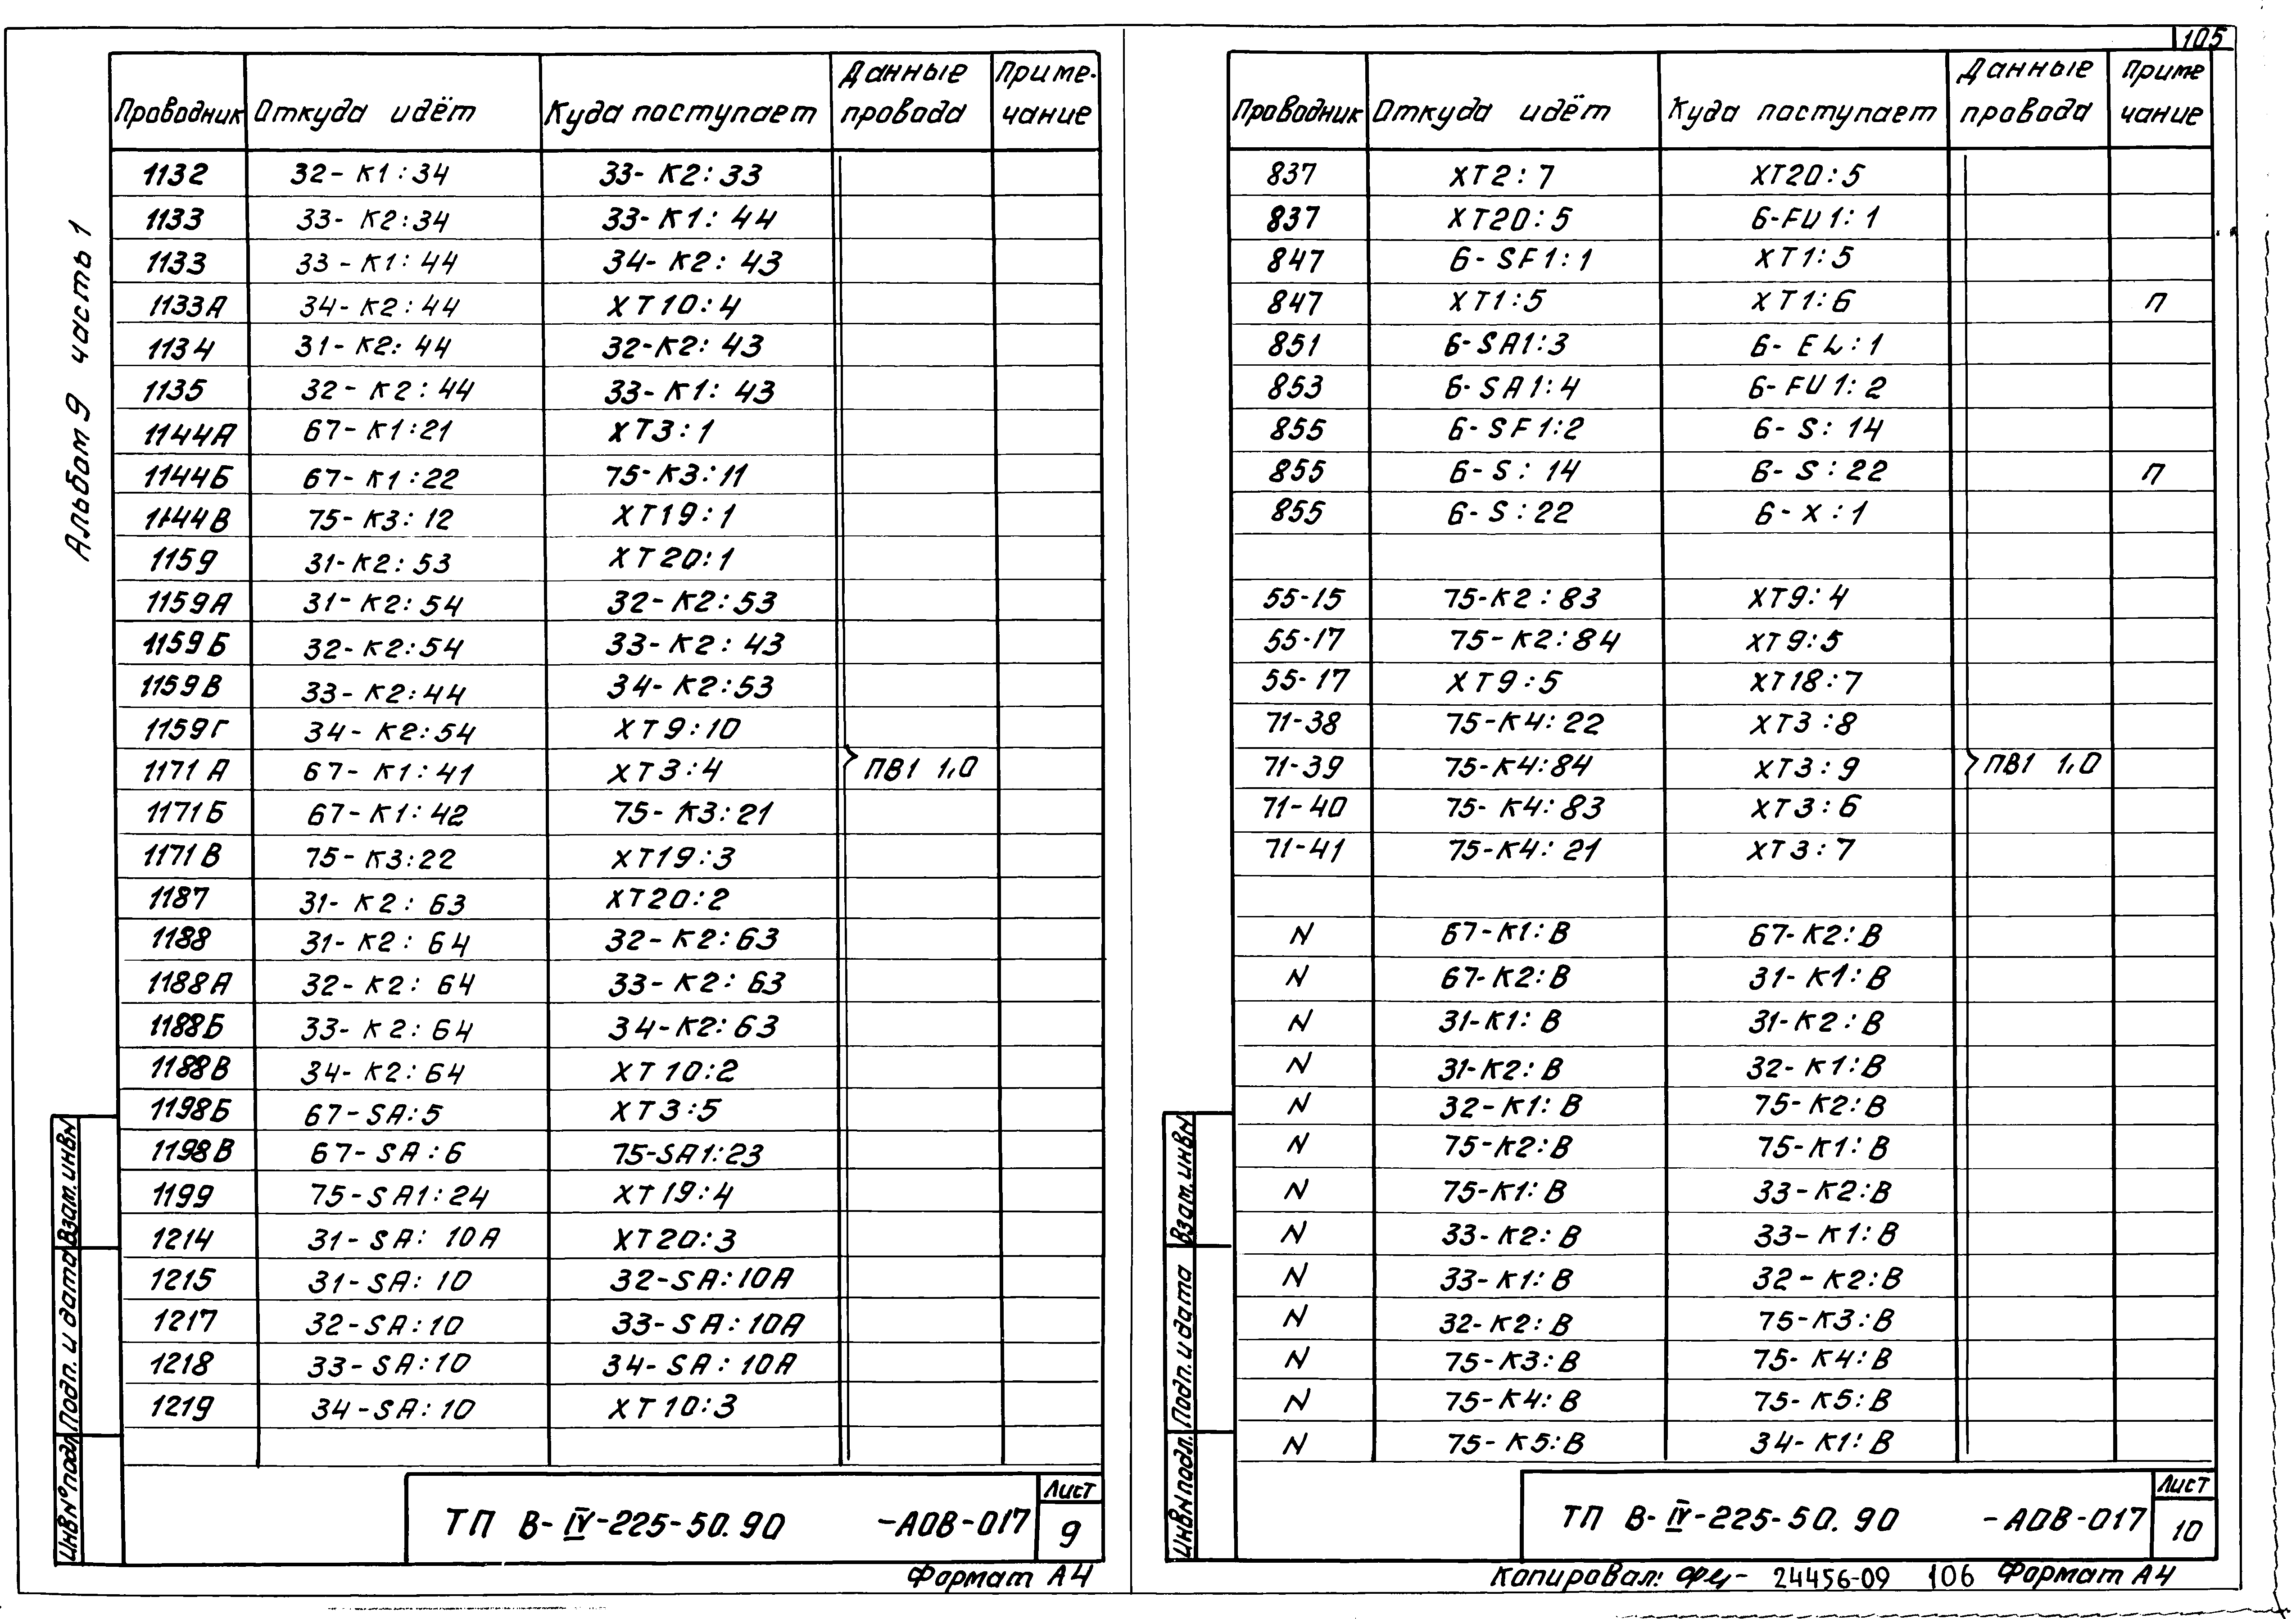 105
Альбом 9 часть 1
Проводник Откуда идёт Куда поступает Данные провода Приме-чание
1132 32-К1:34 33-К2:33
1133 33-К2:34 33-К1:44
1133 33-К1:44 34-К2:43
1133А 34-К2:44 ХТ10:4
1134 31-К2:44 32-К2:43
1135 32-К2:44 33-К1:43
1144А 67-К1:21 ХТ3:1
1144Б 67-К1:22 75-К3:11
1144В 75-К3:12 ХТ19:1
1159 31-К2:53 ХТ20:1
1159А 31-К2:54 32-К2:53
1159Б 32-К2:54 33-К2:43
1159В 33-К2:44 34-К2:53
1159Г 34-К2:54 ХТ9:10
1171А 67-К1:41 ХТ3:4 ПВ1 1,0
1171Б 67-К1:42 75-К3:21
1171В 75-К3:22 ХТ19:3
1187 31-К2:63 ХТ20:2
1188 31-К2:64 32-К2:63
1188А 32-К2:64 33-К2:63
1188Б 33-К2:64 34-К2:63
1188В 34-К2:64 ХТ10:2
1198Б 67-SA:5 ХТ3:5
1198В 67-SA:6 75-SA1:23
1199 75-SA1:24 ХТ19:4
1214 31-SA:10А ХТ20:3
1215 31-SA:10 32-SA:10А
1217 32-SA:10 33-SA:10А
1218 33-SA:10 34-SA:10А
1219 34-SA:10 ХТ10:3
Инв.N°подл. Подп. и дата Взам.инвN
ТП В-IV-225-50.90 -АОВ-017
Лист
9
Формат А4
Проводник Откуда идёт Куда поступает Данные провода Приме чание
837 ХТ2:7 ХТ20:5
837 ХТ20:5 6-FU1:1
847 6-SF1:1 ХТ1:5
847 ХТ1:5 ХТ1:6 П
851 6-SA1:3 6-EL:1
853 6-SA1:4 6-FU1:2
855 6-SF1:2 6-S:14
855 6-S:14 6-S:22 П
855 6-S:22 6-X:1
55-15 75-К2:83 ХТ9:4
55-17 75-К2:84 ХТ9:5
55-17 ХТ9:5 ХТ18:7
71-38 75-К4:22 ХТ3:8
71-39 75-К4:84 ХТ3:9 ПВ1 1,0
71-40 75-К4:83 ХТ3:6
71-41 75-К4:21 ХТ3:7
N 67-К1:В 67-К2:В
N 67-К2:В 31-К1:В
N 31-К1:В 31-К2:В
N 31-К2:В 32-К1:В
N 32-К1:В 75-К2:В
N 75-К2:В 75-К1:В
N 75-К1:В 33-К2:В
N 33-К2:В 33-К1:В
N 33-К1:В 32-К2:В
N 32-К2:В 75-К3:В
N 75-К3:В 75-К4:В
N 75-К4:В 75-К5:В
N 75-К5:В 34-К1:В
Инв.Nподл. Подп. и дата Взам.инвN
ТП В-IV-225-50.90 -АОВ-017
Лист
10
Копировал: 24456-09 106 Формат А4